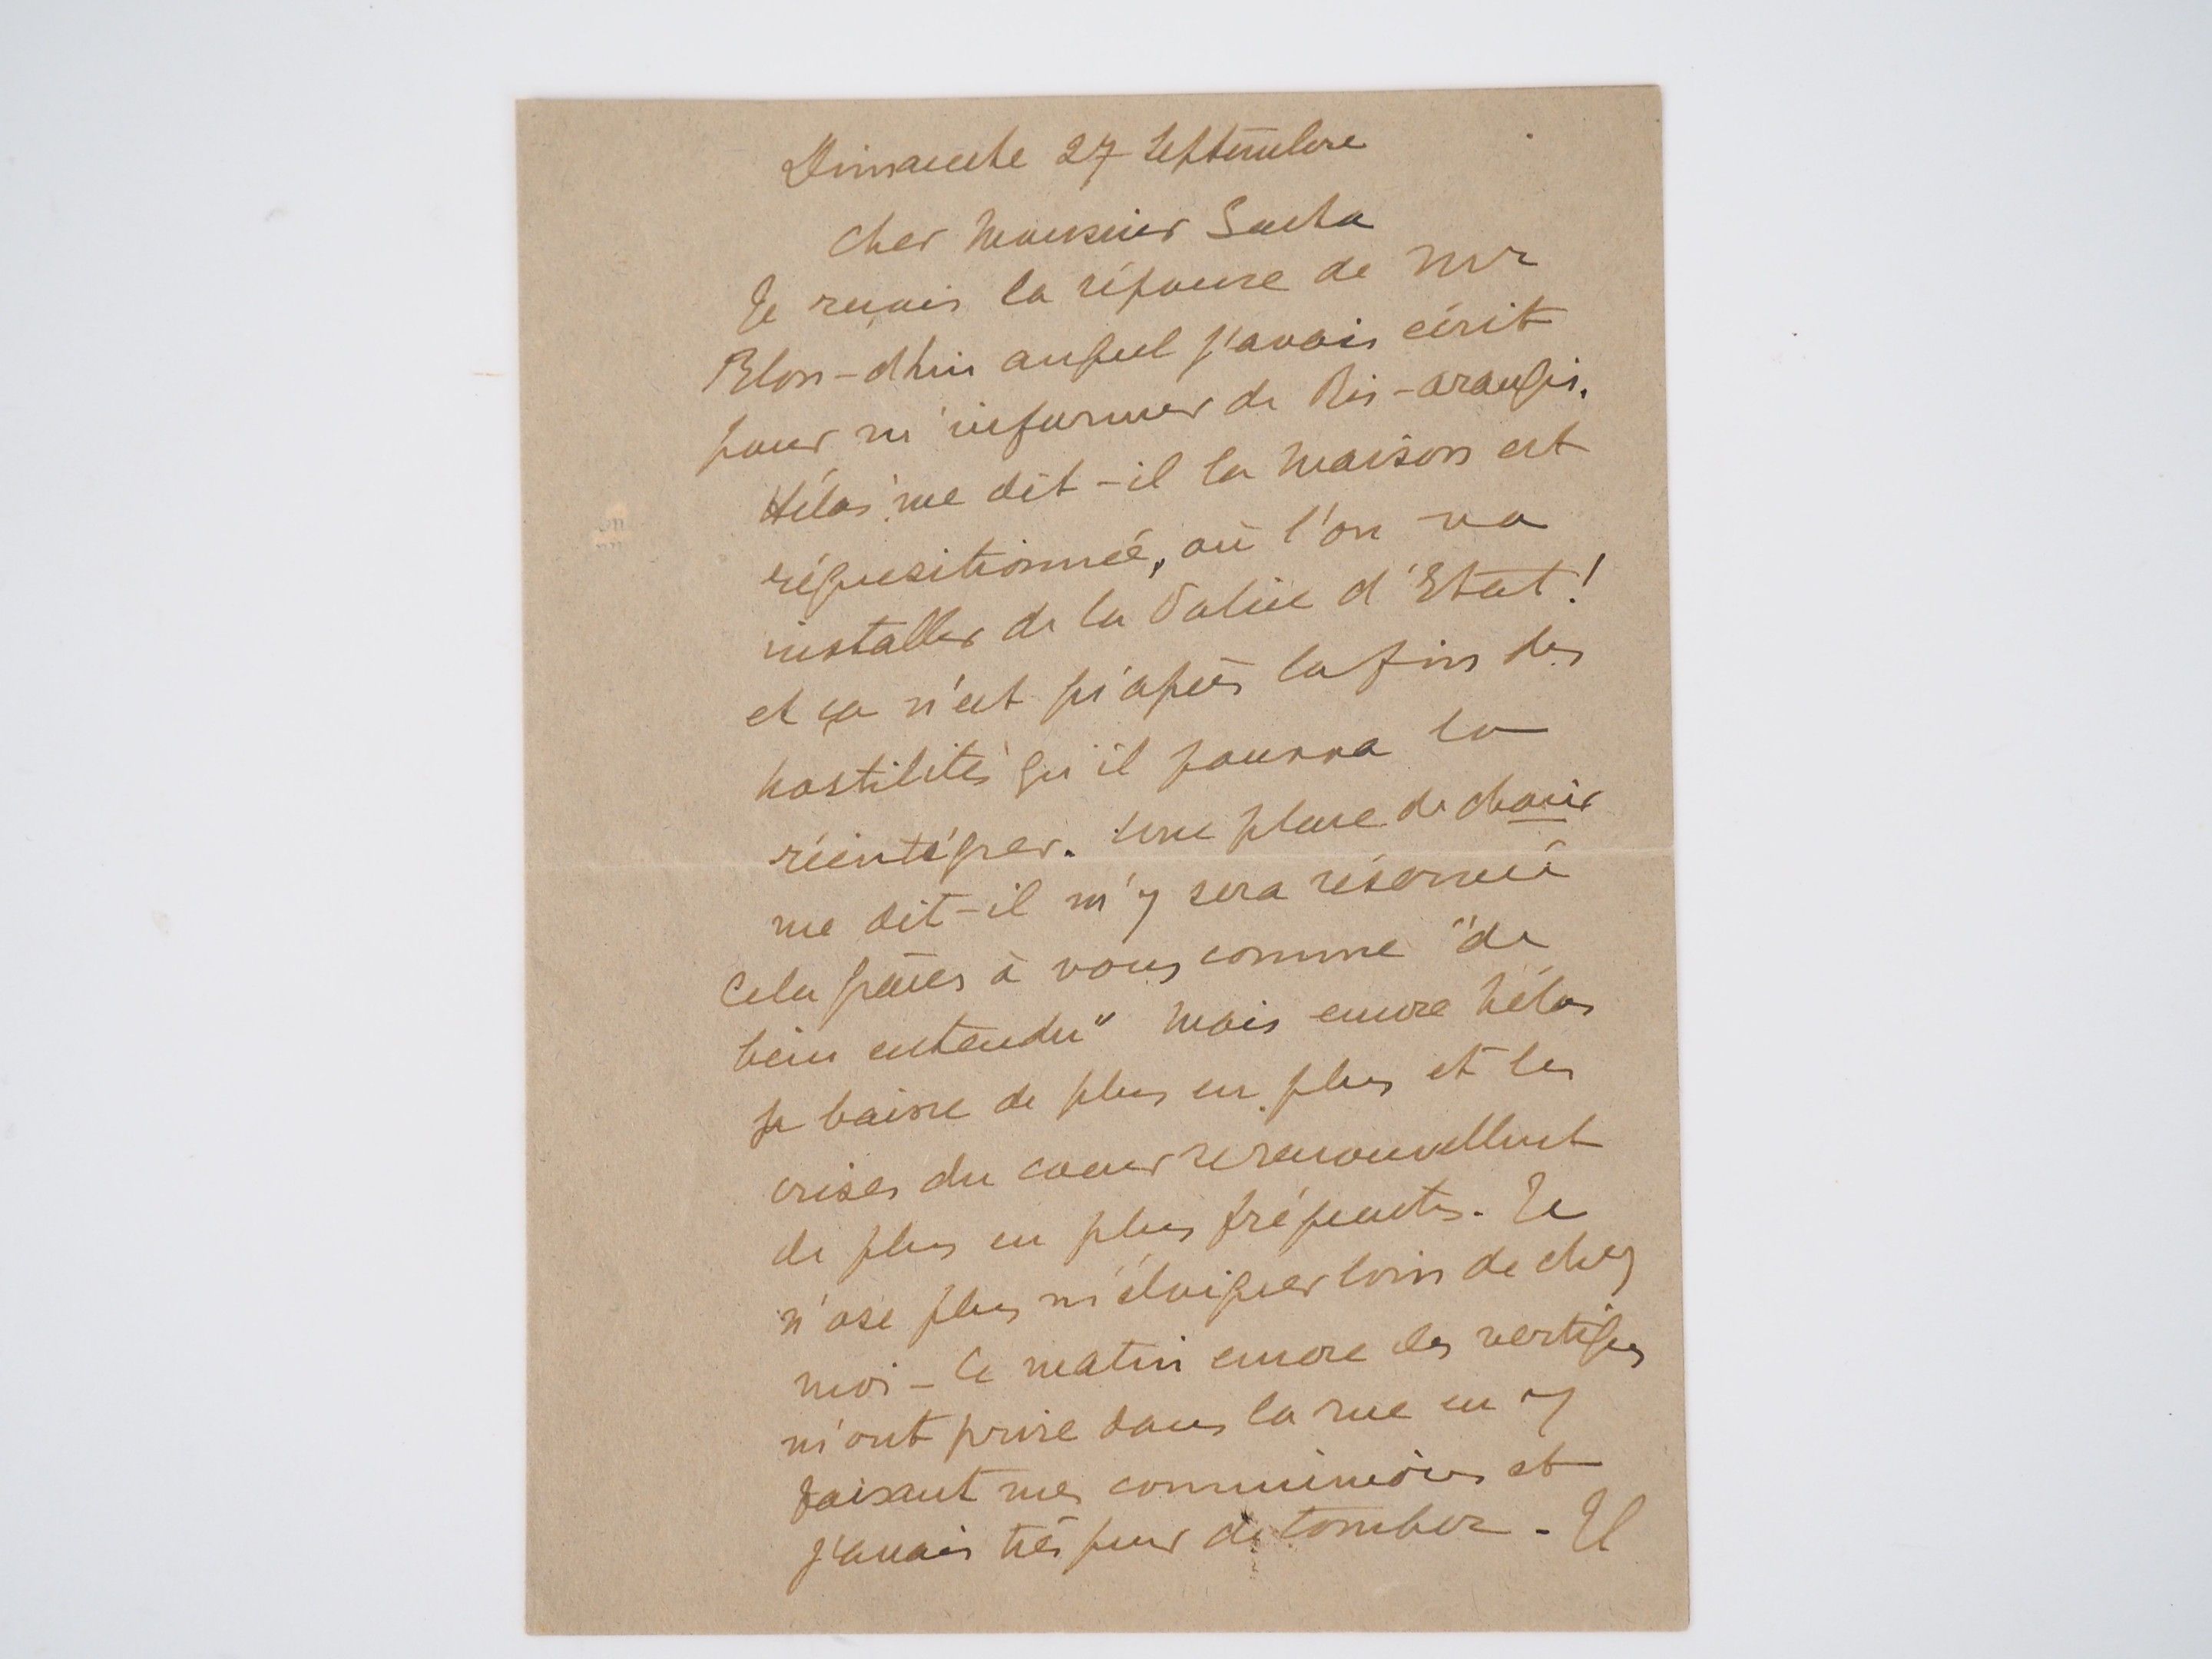 Dimanche 27 Septembre
Cher Monsieur Sacha
Je reçois la réponse de Mr
Blon-dhin auquel j'avais écrit
pour m'informer de Ris-orangis.
Hélas me dit-il la maison est
réquisitionnée, où l'on va
installer de la Police d'Etat!
et ça n'est qu'après la fin des
hostilités qu'il pourra la
réintégrer. Une place de choix
me dit-il m'y sera réservée
Cela grâces à vous comme "de
bien entendu" Mais encore hélas
je baisse de plus en plus et les
crises du coeur se renouvellent
de plus en plus fréquentes. Je
n'ose plus m'éloigner loin de chez
moi - Ce matin encore des vertiges
m'ont prise dans la rue en y
faisant mes commissions et
j'avais très peur de tomber - Il